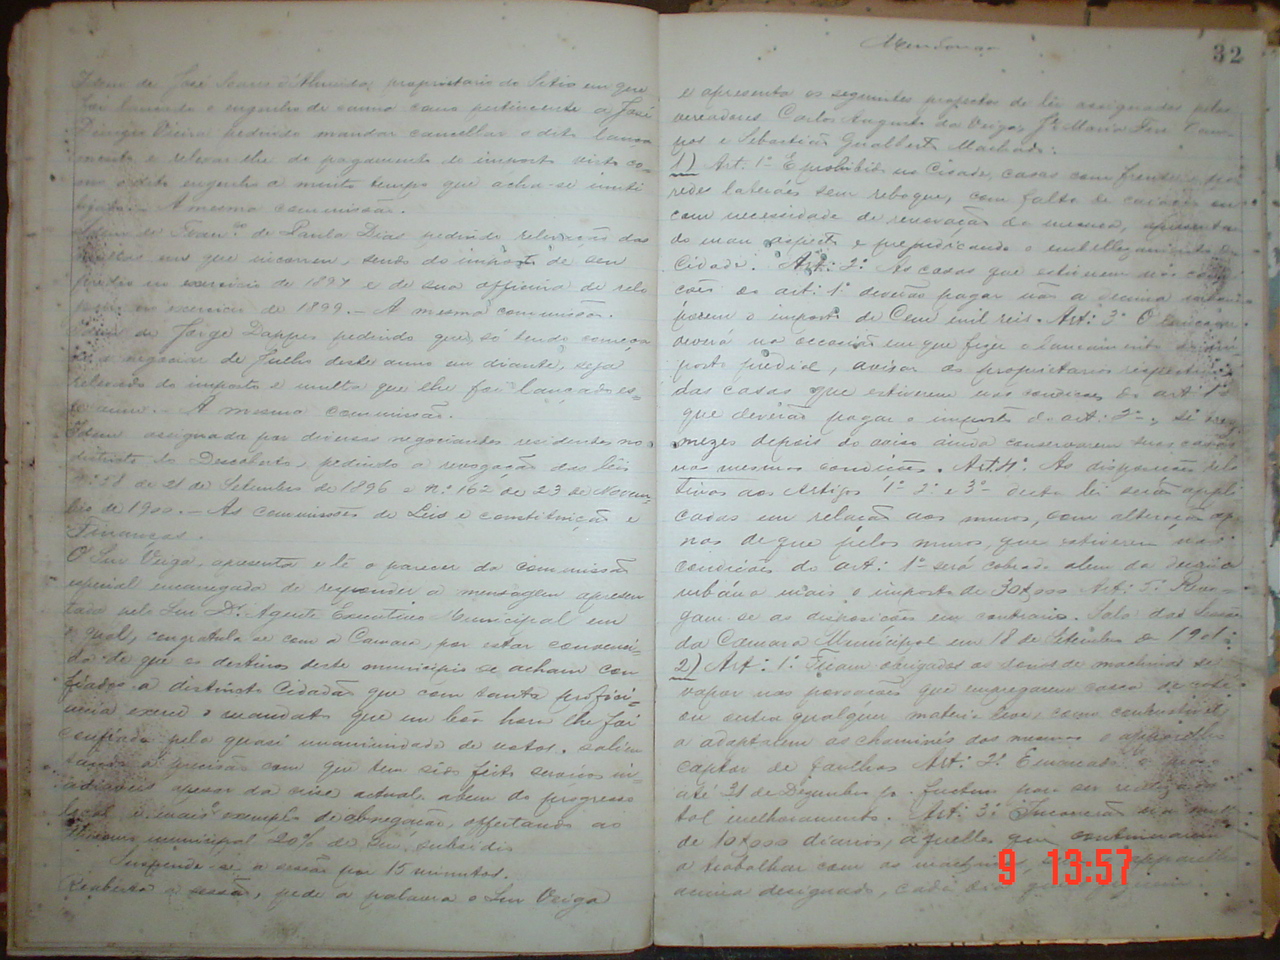 Idem de José Soares d'Almeida, proprietario do Sitio em que
foi lançado o engenho de canna como pertencente a José
Vieira pedindo mandar cancellar o dito lança-
mento e relevar-lhe do pagamento do imposto visto co-
mo o dito engenho a muito tempo que acha-se inuti-
lisado. - A mesma commissão.
Idem de de Paula Dias pedindo relevação das
multas em que incorreu, sendo do imposto de seu
predio no exercicio de 1897 e de sua officina de relo
no exercicio de 1899. - A mesma commissão.
Idem de Jorge Dappes pedindo que, só tendo começa-
do a negociar de Julho deste anno em diante, seja
relevado do imposto e multa que lhe foi lançado es-
te anno. - A mesma commissão.
Idem assignada por diversos negociantes residentes no
districto do Descoberto, pedindo a revogação das leis
nº 58 de 21 de Setembro de 1896 e nº 162 de 23 de Novem-
bro de 1900. - As commissões de Leis e constituição e
Finanças.
O Snr Veiga, apresenta e lê o parecer da commissão
especial encarregada de responder a mensagem apresen-
tada pelo Snr Dr. Agente Executivo Municipal em
o qual, congratula-se com a Camara, por estar convenci-
da de que os destinos deste municipio se acham con-
fiados a distincto Cidadão que com tanta profici-
encia exerce o mandato que em boa hora lhe foi
confiado pela quasi unanimidade de votos, salien-
tando a precisão com que tem sido feito serviços in-
adiaveis apesar da crise actual, alem do progresso
local e mais exemplo de abnegação, offertando ao
municipal 20% de seu subsidio
Suspende-se a sessão por 15 minutos.
Reaberta a sessão, pede a palavra o Snr Veiga
Mendonça
32
e apresenta os seguintes projectos de lei assignados pelos
vereadores Carlos Augusto da Veiga, Jº Maria Cam-
pos e Sebastião Gualberto Machado:
1) Art. 1º É prohibido na Cidade, casas com frentes e pa-
redes lateraes sem reboque, com falta de caiação ou
com necessidade de renovação da mesma, apresentan-
do mau aspecto e prejudicando o embellezamento da
Cidade. Art: 2º As casas que estiverem nas condi-
ções do art: 1º deverão pagar não a decima urbana
porem o imposto de Cem mil reis. Art: 3º O
deverá na occasião em que fizer o lançamento do im-
posto predial, avisar os proprietarios respectivos
das casas que estiverem nas condições do art 1º
que deverão pagar o imposto do art: 2º, se tres
mezes depois do aviso ainda conservarem suas casas
nas mesmas condições. Art. 4º As disposições rela-
tivas aos Artigos 1º 2º e 3º desta lei serão appli-
cadas em relação aos muros, com alteração ape-
nas de que pelos muros, que estiverem nas
condições do art: 1º será cobrado alem da decima
urbana mais o imposto de 30$000 Art: 5º Revo-
gam-se as disposições em contrario. Sala das Sessões
da Camara Municipal em 18 de Setembro de 1901.
2) Art: 1º Ficam obrigados os donos de machinas a
vapor nas povoações que empregarem casca de café
ou outra qualquer materia leve, como combustivel
a adaptarem as chaminés dos mesmos o apparelho
captor de faulhas Art: 2º É marcado o praso
até 31 de Dezembro p. futuro para ser realizado
tal melhoramento. Art: 3º Incorrerão na multa
de 10$000 diarios, aquelles que continuarem
a trabalhar com as machinas, apparelho
acima designado, cada dia
9 13:57